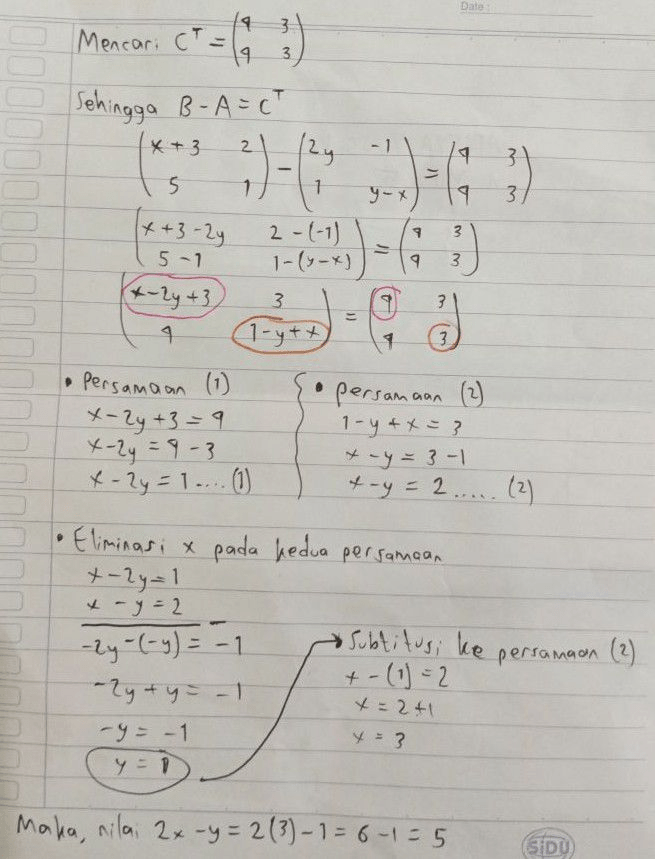 Date :
Mencari C^T = (4 3
4 3)
Sehingga B - A = C^T
(x + 3 2
5 1) - (2y -1
1 y-x) = (4 3
4 3)
(x + 3 - 2y 2 - (-1)
5 - 1 1 - (y-x)) = (4 3
4 3)
(x - 2y + 3 3
4 1 - y + x) = (4 3
4 3)
• Persamaan (1)
x - 2y + 3 = 4
x - 2y = 4 - 3
x - 2y = 1 .... (1)
• persamaan (2)
1 - y + x = 3
x - y = 3 - 1
x - y = 2 ..... (2)
• Eliminasi x pada kedua persamaan
x - 2y = 1
x - y = 2 -
-2y - (-y) = -1
-2y + y = -1
-y = -1
y = 1
→ Subtitusi ke persamaan (2)
x - (1) = 2
x = 2 + 1
x = 3
Maka, nilai 2x - y = 2(3) - 1 = 6 - 1 = 5
SiDU